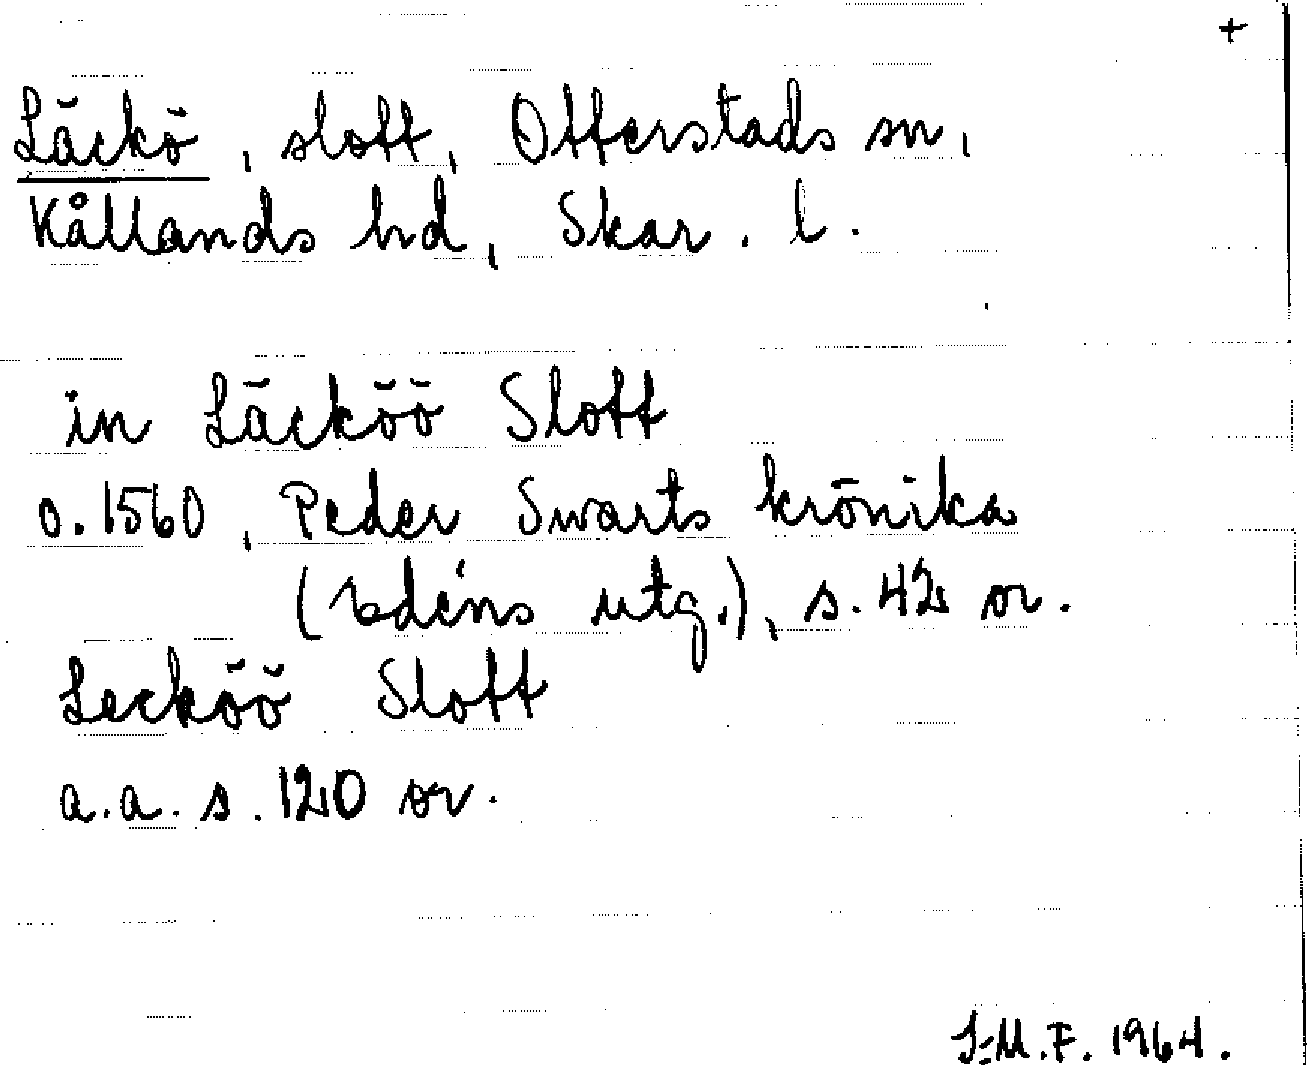 +
Läckö, slott, Otterstads sn,
Kållands hd, Skar. l.
in Läcköö Slott
o. 1560, Peder Swarts krönika
(Edéns utg.), s. 42 or.
Leckóó Slott
a.a. s. 120 or.
I-M.F. 1964.